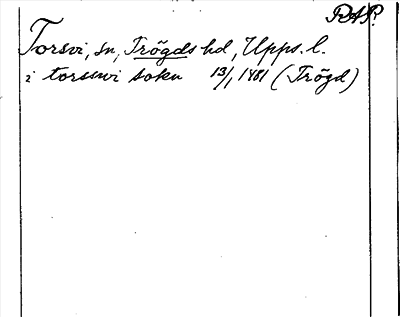 RAP.
Torsvi, sn, Trögds hd, Upps. l.
i torswi sokn 13/1 1481 (Trögd)